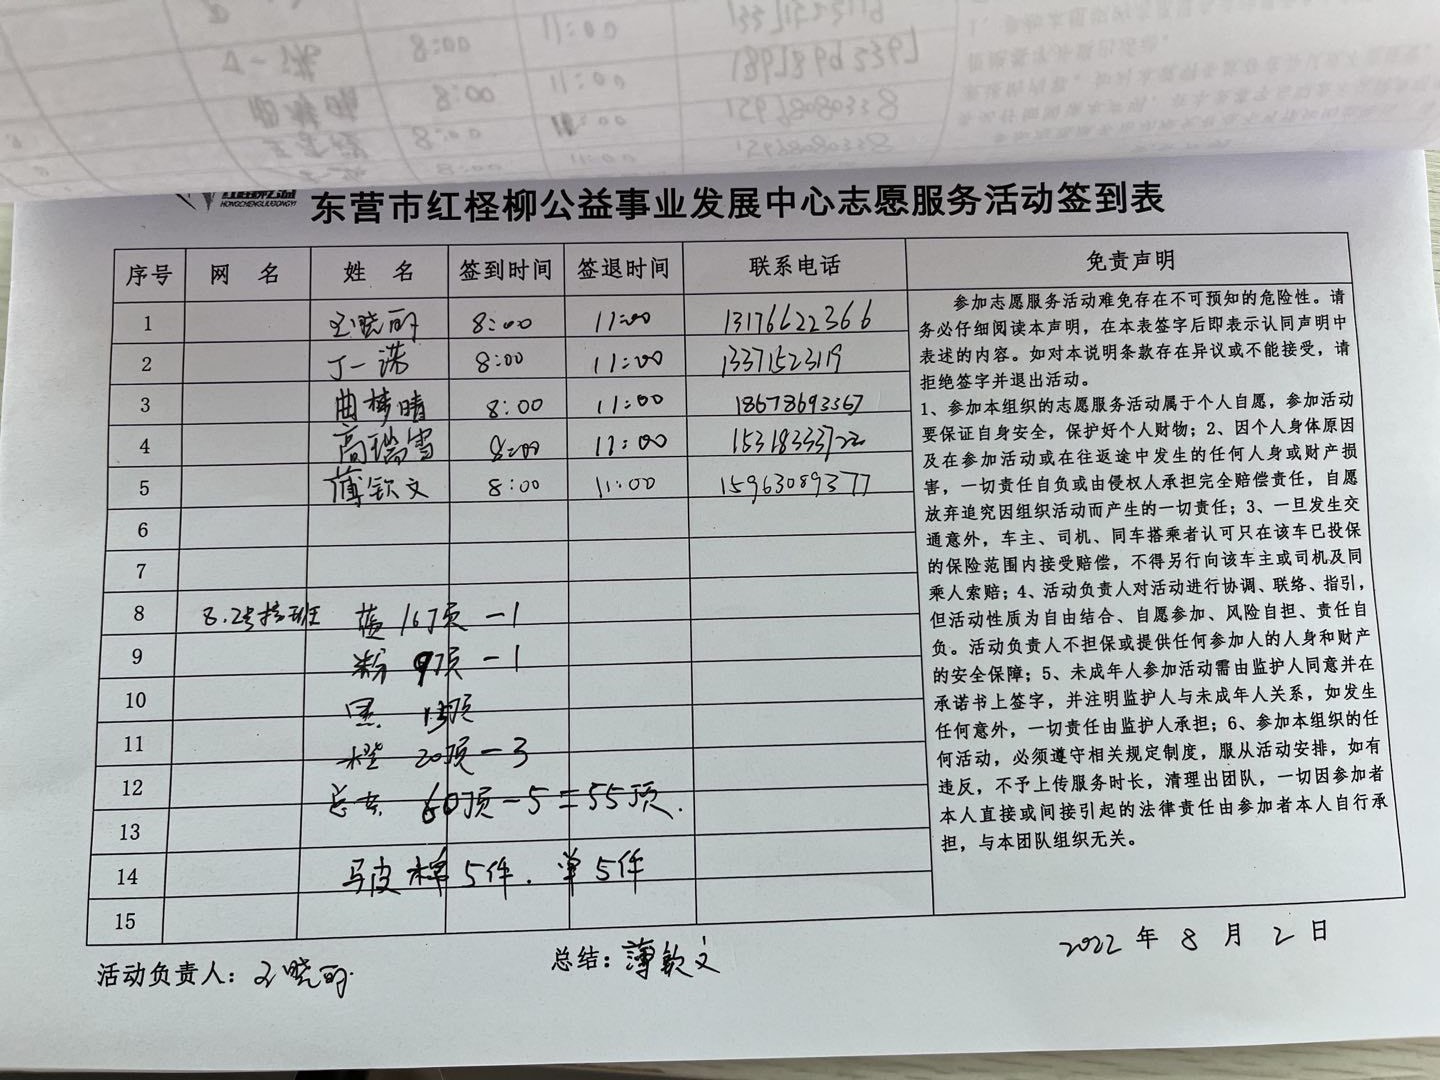 HONGCHENGLIUGONGYI
东营市红柽柳公益事业发展中心志愿服务活动签到表
序号 网 名 姓 名 签到时间 签退时间 联系电话 免责声明
1 王晓丽 8:00 11:00 13176622366
2 丁一诺 8:00 11:00 13371523119
3 曲梦晴 8:00 11:00 18678693367
4 高瑞雪 8:00 11:00
5 薄钦文 8:00 11:00 15963089377
6
7
8 8.2号接班 蓝 16顶-1
9 粉 9顶-1
10 黑 15顶
11 橙 20顶-3
12 总共 60顶-5=55顶.
13
14 马皮 棉5件. 单5件
15
参加志愿服务活动难免存在不可预知的危险性。请
务必仔细阅读本声明，在本表签字后即表示认同声明中
表述的内容。如对本说明条款存在异议或不能接受，请
拒绝签字并退出活动。
1、参加本组织的志愿服务活动属于个人自愿，参加活动
要保证自身安全，保护好个人财物；2、因个人身体原因
及在参加活动或在往返途中发生的任何人身或财产损
害，一切责任自负或由侵权人承担完全赔偿责任，自愿
放弃追究因组织活动而产生的一切责任；3、一旦发生交
通意外，车主、司机、同车搭乘者认可只在该车已投保
的保险范围内接受赔偿，不得另行向该车主或司机及同
乘人索赔；4、活动负责人对活动进行协调、联络、指引，
但活动性质为自由结合、自愿参加、风险自担、责任自
负。活动负责人不担保或提供任何参加人的人身和财产
的安全保障；5、未成年人参加活动需由监护人同意并在
承诺书上签字，并注明监护人与未成年人关系，如发生
任何意外，一切责任由监护人承担；6、参加本组织的任
何活动，必须遵守相关规定制度，服从活动安排，如有
违反，不予上传服务时长，清理出团队，一切因参加者
本人直接或间接引起的法律责任由参加者本人自行承
担，与本团队组织无关。
活动负责人：王晓丽 总结：薄钦文 2022 年 8 月 2 日